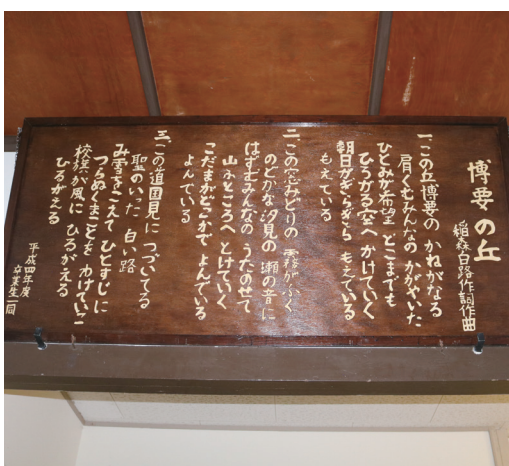 博要の丘
稲森白路作詞作曲
一、この丘博要の かねがなる
肩くむみんなの かがやいた
ひとみが希望 どこまでも
ひろがる空へ かけていく
朝日がぎらぎら もえている
もえている
二、この窓みどりの 霧がふく
のどかな汐見の 瀬の音に
はずむみんなの うたのせて
山ふところへ とけていく
こだまがどこかで よんでいる
よんでいる
三、この道国見に つづいてる
聖のいった 白い路
み雪をこえて ひとすじに
つらぬくまことを わけていこ
校旗が風に ひるがえる
ひるがえる
平成四年度
卒業生一同